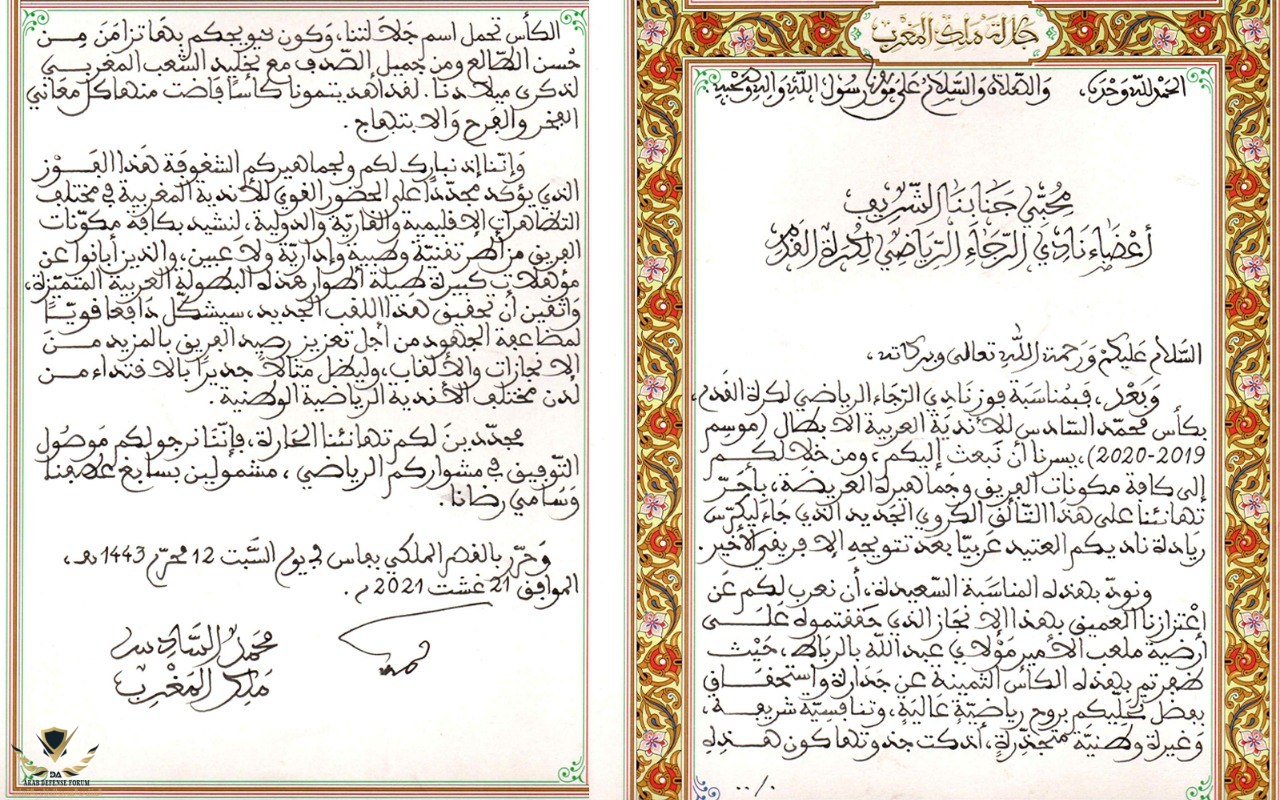 جلالة ملك المغرب
الحمد لله وحده، والصلاة والسلام على مولانا رسول الله وآله وصحبه.
محبي جنابنا الشريف
أعضاء نادي الرجاء الرياضي لكرة القدم
السلام عليكم ورحمة الله تعالى وبركاته،
وبعد، فبمناسبة فوز نادي الرجاء الرياضي لكرة القدم،
بكأس محمد السادس للأندية العربية الأبطال (موسم
2019-2020)، يسرنا أن نبعث إليكم، ومن خلالكم
إلى كافة مكونات الفريق وجماهيره العريضة، بأحر
تهانئنا على هذا التألق الكروي الجديد الذي جاء ليكرس
ريادة ناديكم العتيد عربيا بعد تتويجه الإفريقي الأخير.
ونود بهذه المناسبة السعيدة، أن نعرب لكم عن
اعتزازنا العميق بهذا الإنجاز الذي حققتموه على
أرضية ملعب الأمير مولاي عبد الله بالرباط، حيث
ظفرتم بهذه الكأس الثمينة عن جدارة واستحقاق
بفضل تحليكم بروح رياضية عالية، وتنافسية شريفة،
وغيرة وطنية متجذرة، أذكت جذوتها كون هذه
../.
الكأس تحمل اسم جلالتنا، وكون تتويجكم بها تزامن من
حسن الطالع ومن جميل الصدف مع تخليد الشعب المغربي
لذكرى ميلادنا. لقد أهديتمونا كأسا فاضت منها كل معاني
الفخر والفرح والابتهاج.
وإننا إذ نبارك لكم ولجماهيركم الشغوفة هذا الفوز
الذي يؤكد مجددا على الحضور القوي للأندية المغربية في مختلف
التظاهرات الإقليمية والقارية والدولية، لنشيد بكافة مكونات
الفريق من أطر تقنية وطبية وإدارية ولاعبين، والذين أبانوا عن
مؤهلات كبيرة طيلة أطوار هذه البطولة العربية المتميزة،
واثقين أن تحقيق هذا اللقب الجديد، سيشكل دافعا قويا
لمضاعفة الجهود من أجل تعزيز رصيد الفريق بالمزيد من
الإنجازات والألقاب، وليظل مثالا جديرا بالاقتداء من
لدن مختلف الأندية الرياضية الوطنية.
مجددين لكم تهانئنا الحارة، فإننا نرجو لكم موصول
التوفيق في مشواركم الرياضي، مشمولين بسابغ عطفنا
وسامي رضانا.
وحرر بالقصر الملكي بفاس في يوم السبت 12 محرم 1443 هـ،
الموافق 21 غشت 2021 م.
محمد السادس
ملك المغرب
DA
ARAB DEFENSE FORUM